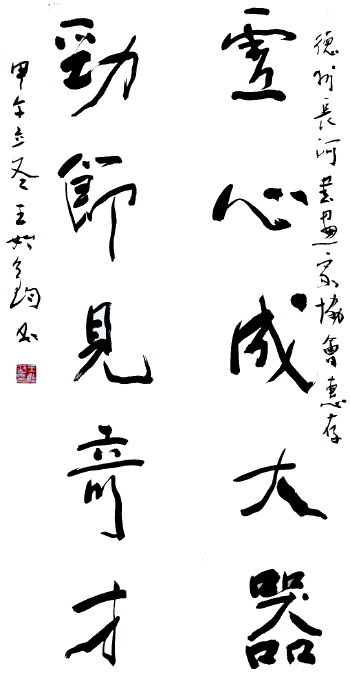 德州長河書畫家協會惠存
虛心成大器
勁節見奇才
甲午立冬王